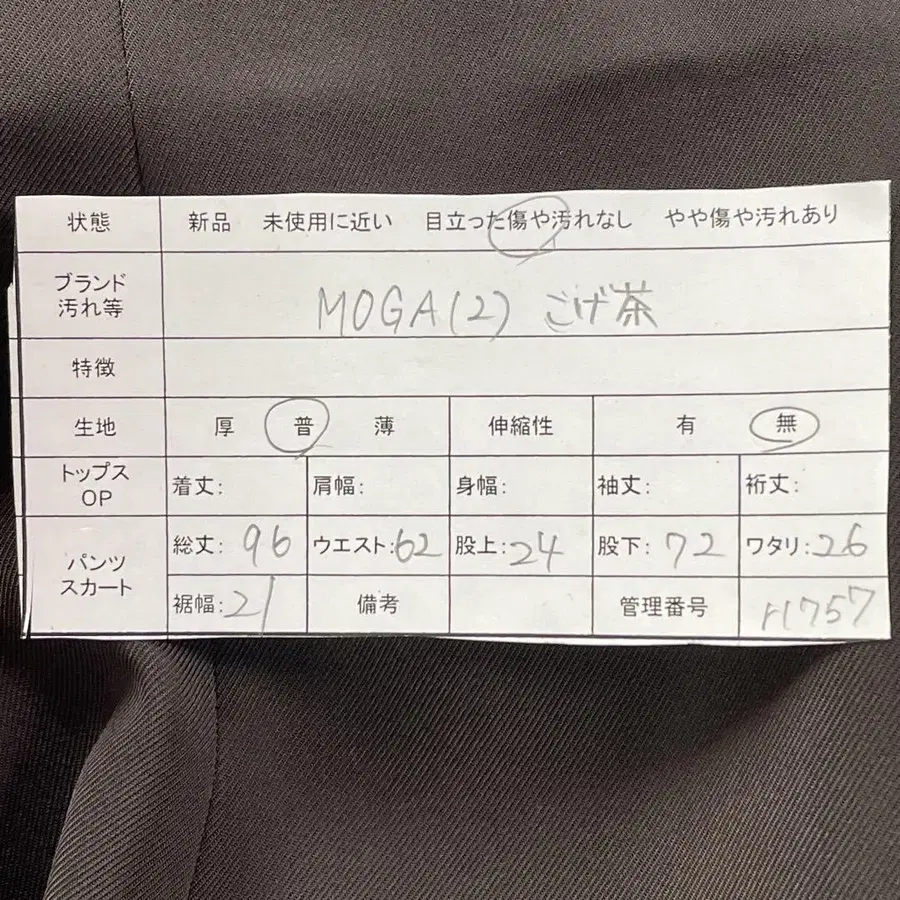 状態 新品 未使用に近い 目立った傷や汚れなし やや傷や汚れあり
ブランド
汚れ等
MOGA(2) こげ茶
特徴
生地 厚 普 薄 伸縮性 有 無
トップス
OP
着丈: 肩幅: 身幅: 袖丈: 裄丈:
パンツ
スカート
総丈: 96 ウエスト:62 股上:24 股下: 72 ワタリ:26
裾幅:21 備考 管理番号 r1757